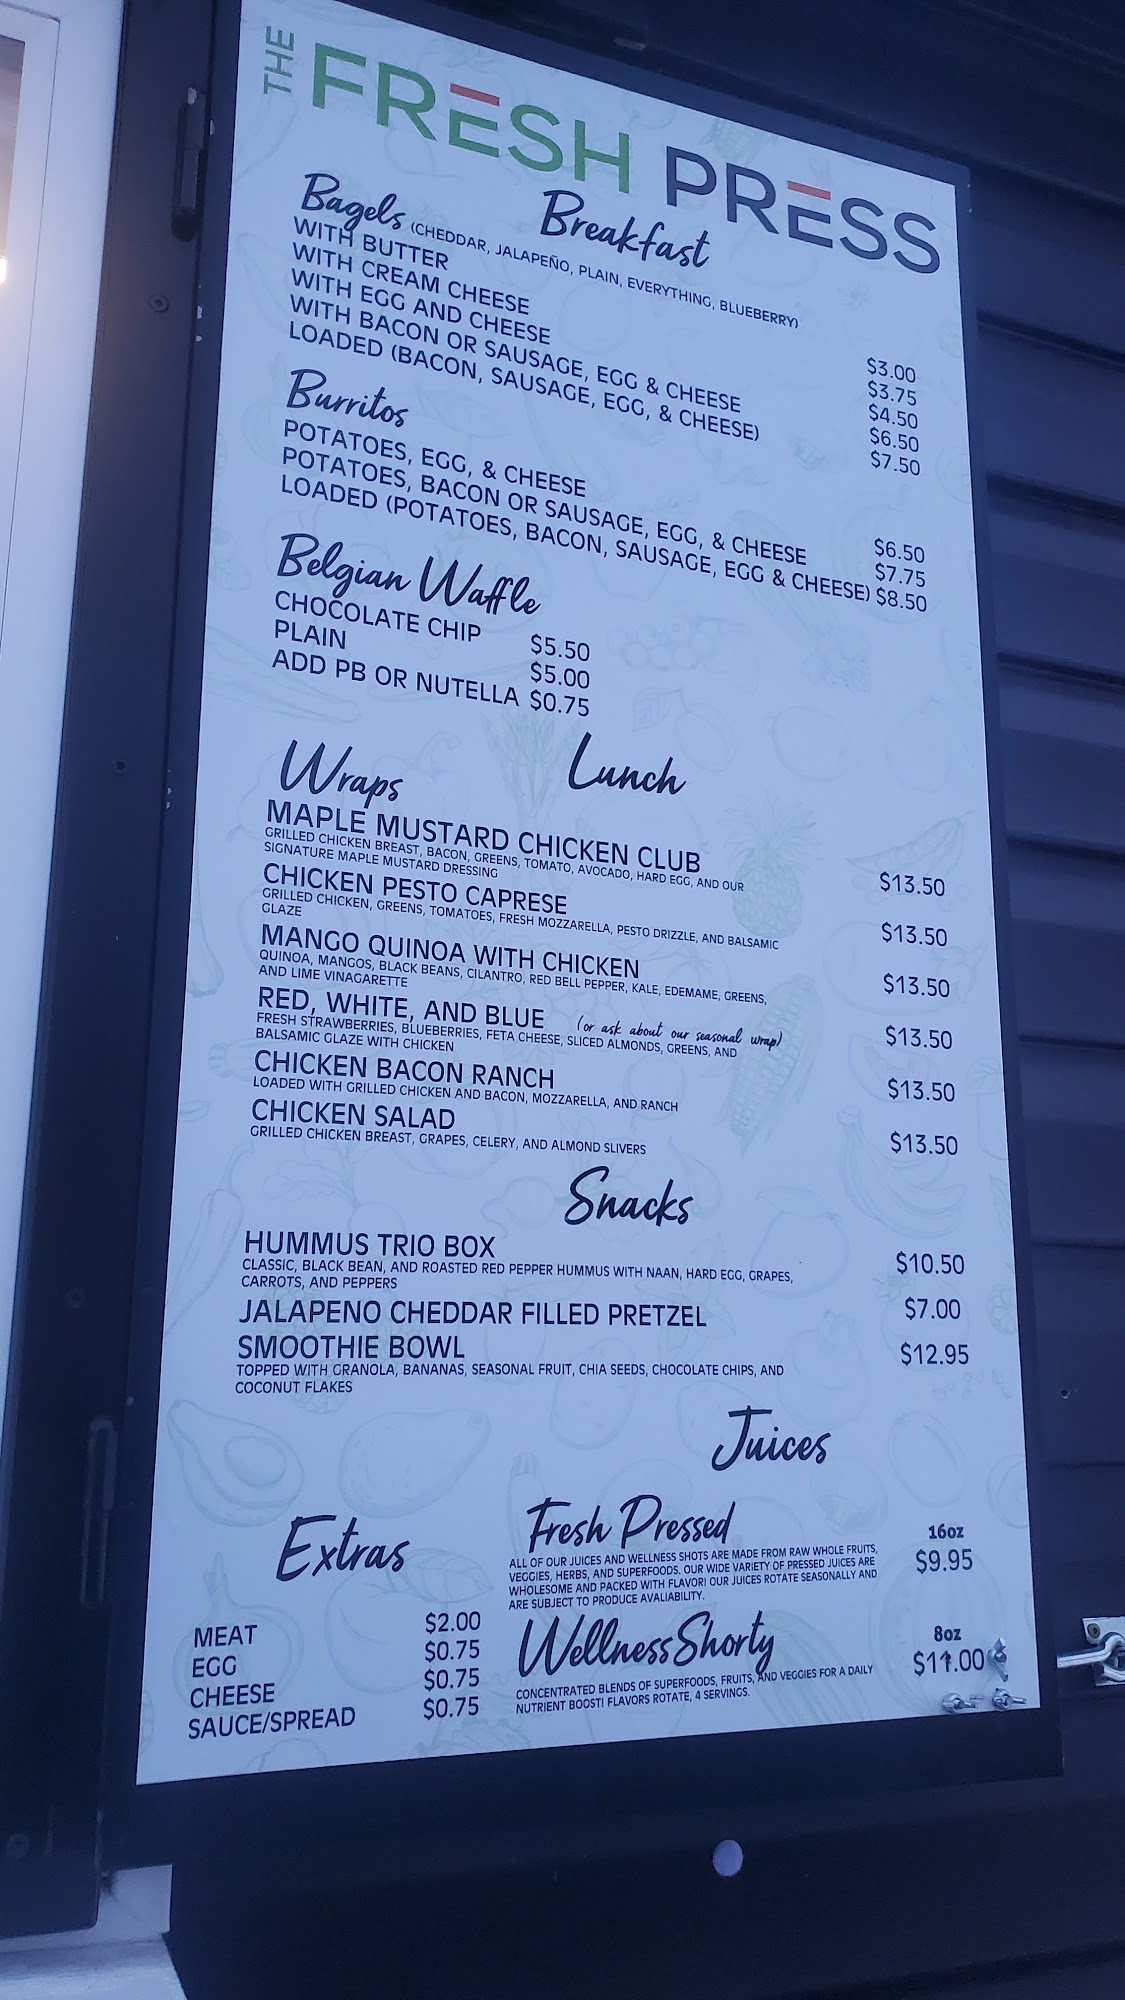 THE FRESH PRESS
Breakfast
Bagels (CHEDDAR, JALAPEÑO, PLAIN, EVERYTHING, BLUEBERRY)
WITH BUTTER $3.00
WITH CREAM CHEESE $3.75
WITH EGG AND CHEESE $4.50
WITH BACON OR SAUSAGE, EGG & CHEESE $6.50
LOADED (BACON, SAUSAGE, EGG, & CHEESE) $7.50
Burritos
POTATOES, EGG, & CHEESE $6.50
POTATOES, BACON OR SAUSAGE, EGG, & CHEESE $7.75
LOADED (POTATOES, BACON, SAUSAGE, EGG & CHEESE) $8.50
Belgian Waffle
CHOCOLATE CHIP $5.50
PLAIN $5.00
ADD PB OR NUTELLA $0.75
Lunch
Wraps
MAPLE MUSTARD CHICKEN CLUB $13.50
GRILLED CHICKEN BREAST, BACON, GREENS, TOMATO, AVOCADO, HARD EGG, AND OUR
SIGNATURE MAPLE MUSTARD DRESSING
CHICKEN PESTO CAPRESE $13.50
GRILLED CHICKEN, GREENS, TOMATOES, FRESH MOZZARELLA, PESTO DRIZZLE, AND BALSAMIC
GLAZE
MANGO QUINOA WITH CHICKEN $13.50
QUINOA, MANGOS, BLACK BEANS, CILANTRO, RED BELL PEPPER, KALE, EDEMAME, GREENS,
AND LIME VINAGARETTE
RED, WHITE, AND BLUE (or ask about our seasonal wrap) $13.50
FRESH STRAWBERRIES, BLUEBERRIES, FETA CHEESE, SLICED ALMONDS, GREENS, AND
BALSAMIC GLAZE WITH CHICKEN
CHICKEN BACON RANCH $13.50
LOADED WITH GRILLED CHICKEN AND BACON, MOZZARELLA, AND RANCH
CHICKEN SALAD $13.50
GRILLED CHICKEN BREAST, GRAPES, CELERY, AND ALMOND SLIVERS
Snacks
HUMMUS TRIO BOX $10.50
CLASSIC, BLACK BEAN, AND ROASTED RED PEPPER HUMMUS WITH NAAN, HARD EGG, GRAPES,
CARROTS, AND PEPPERS
JALAPENO CHEDDAR FILLED PRETZEL $7.00
SMOOTHIE BOWL $12.95
TOPPED WITH GRANOLA, BANANAS, SEASONAL FRUIT, CHIA SEEDS, CHOCOLATE CHIPS, AND
COCONUT FLAKES
Extras
MEAT $2.00
EGG $0.75
CHEESE $0.75
SAUCE/SPREAD $0.75
Juices
Fresh Pressed 16oz $9.95
ALL OF OUR JUICES AND WELLNESS SHOTS ARE MADE FROM RAW WHOLE FRUITS,
VEGGIES, HERBS, AND SUPERFOODS. OUR WIDE VARIETY OF PRESSED JUICES ARE
WHOLESOME AND PACKED WITH FLAVOR! OUR JUICES ROTATE SEASONALLY AND
ARE SUBJECT TO PRODUCE AVALIABILITY.
Wellness Shorty 8oz $11.00
CONCENTRATED BLENDS OF SUPERFOODS, FRUITS, AND VEGGIES FOR A DAILY
NUTRIENT BOOST! FLAVORS ROTATE, 4 SERVINGS.